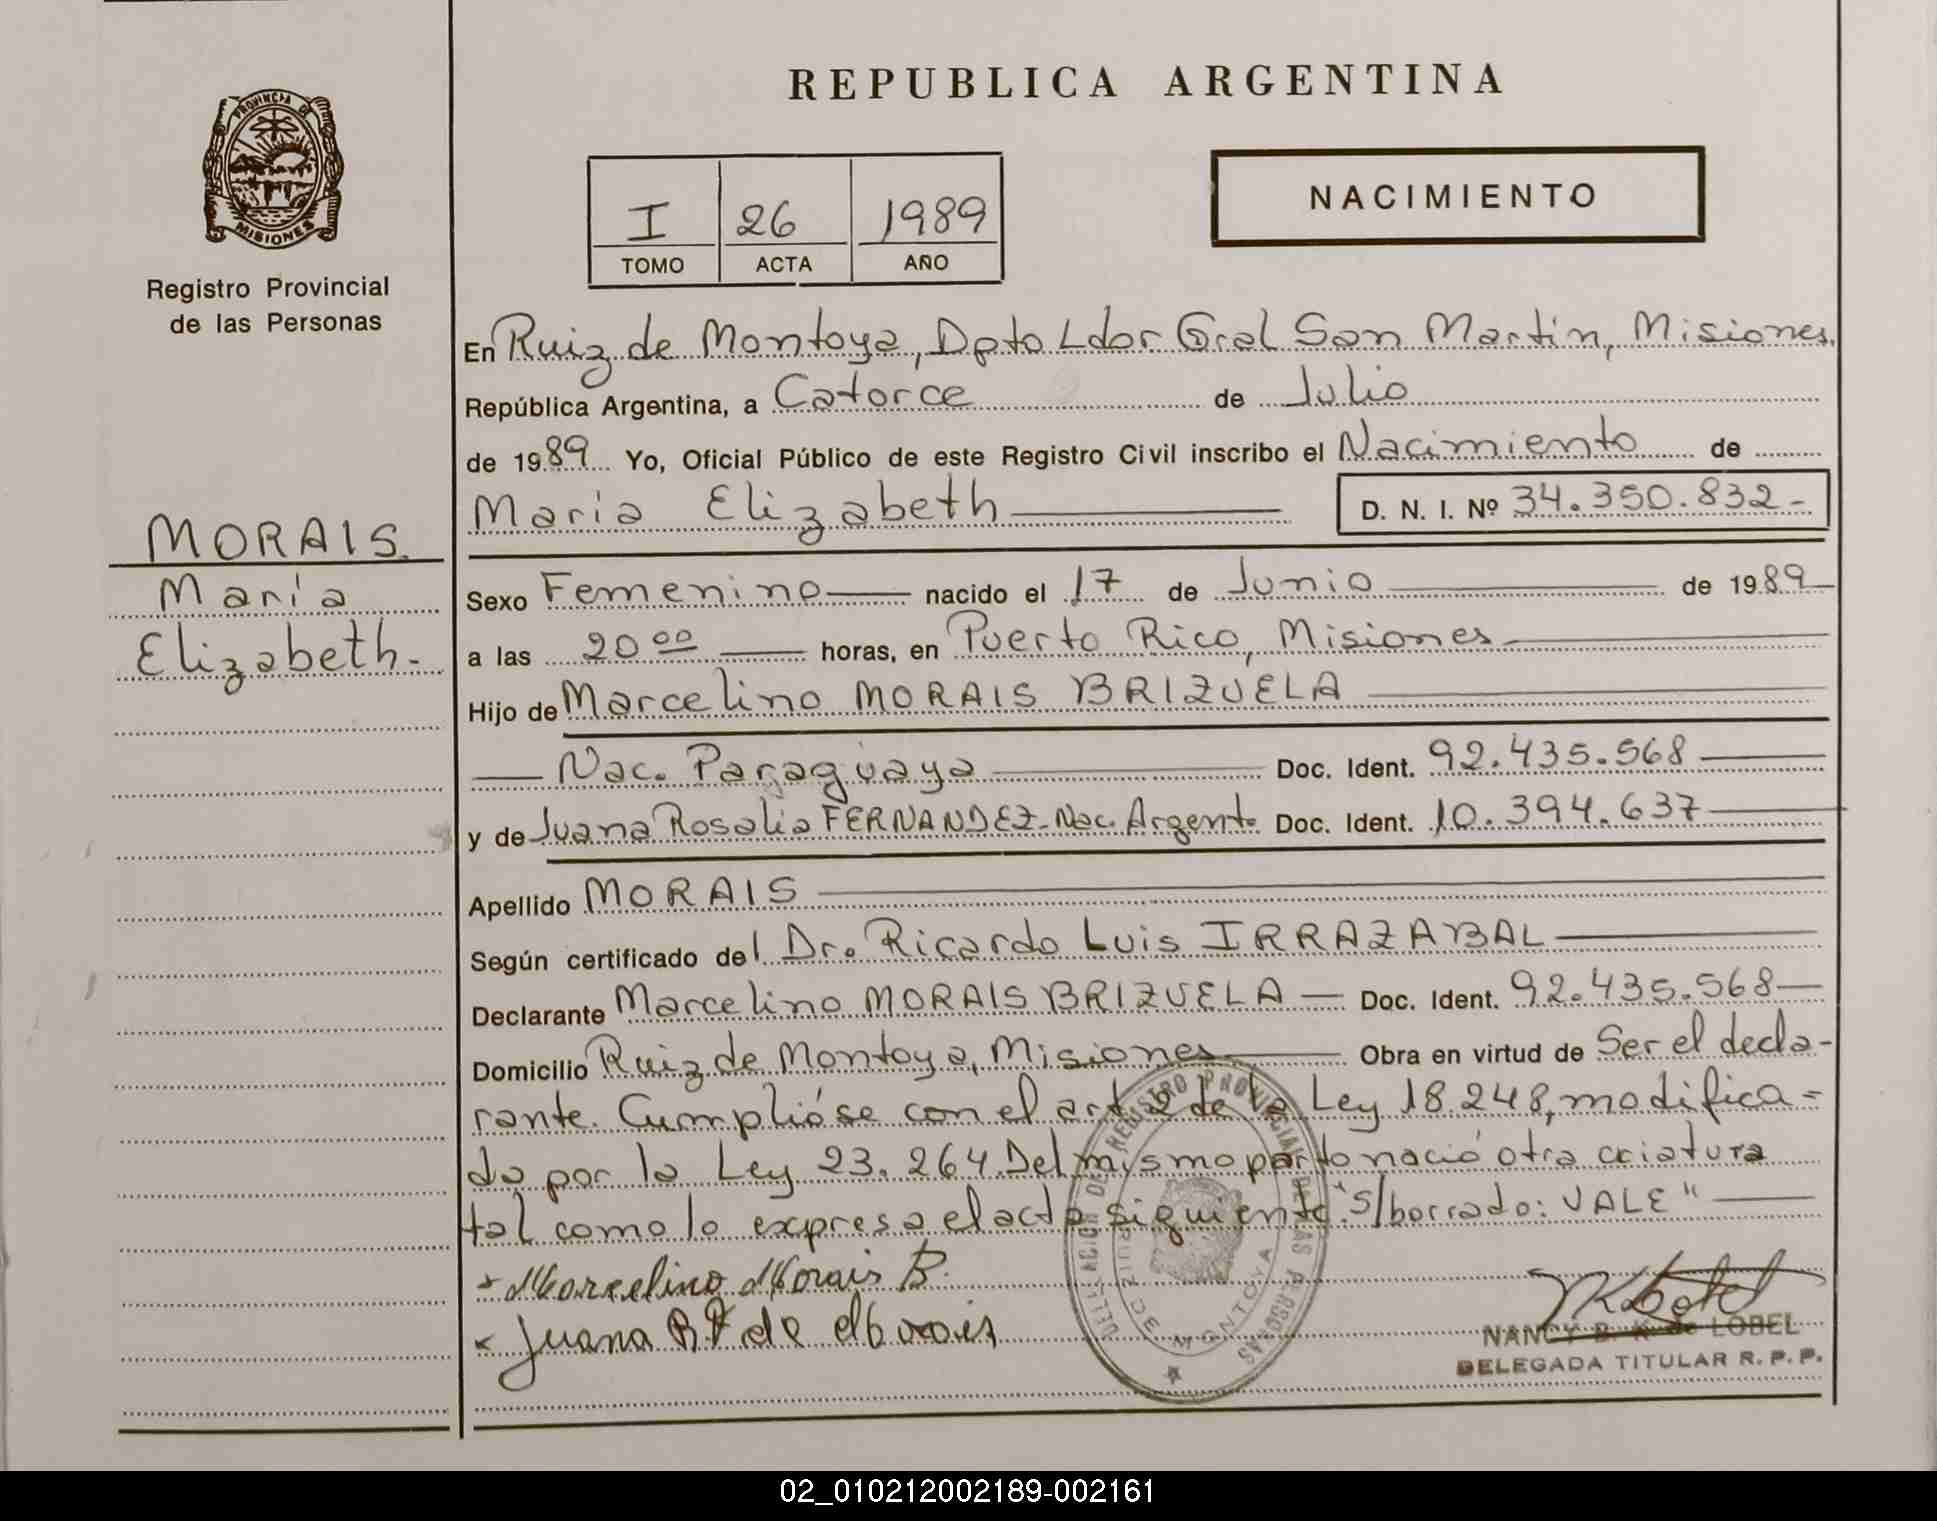 REPUBLICA ARGENTINA
PROVINCIA DE
MISIONES
Registro Provincial
de las Personas
I 26 1989
TOMO ACTA AÑO
NACIMIENTO
En Ruiz de Montoya, Dpto Ldor Gral San Martin, Misiones.
República Argentina, a Catorce de Julio
de 1989 Yo, Oficial Público de este Registro Civil inscribo el Nacimiento de
María Elizabeth D. N. I. Nº 34.350.832-
MORAIS.
María
Elizabeth.
Sexo Femenino nacido el 17 de Junio de 1989
a las 20 00 horas, en Puerto Rico, Misiones
Hijo de Marcelino MORAIS BRIZUELA
Nac. Paraguaya Doc. Ident. 92.435.568
y de Juana Rosalia FERNANDEZ-Nac. Argent. Doc. Ident. 10.394.637
Apellido MORAIS
Según certificado del Dr. Ricardo Luis IRRAZABAL
Declarante Marcelino MORAIS BRIZUELA Doc. Ident. 92.435.568
Domicilio Ruiz de Montoya, Misiones Obra en virtud de Ser el decla-
rante. Cumplióse con el art 2 de la Ley 18.248, modifica=
da por la Ley 23.264. Del mismo parto nació otra criatura
tal como lo expresa el acta siguiente. "S/borrado: VALE"
Marcelino Morais B.
Juana R. F. de Morais
DELEGACION DEL REGISTRO PROVINCIAL DE LAS PERSONAS
RUIZ DE MONTOYA
NANCY B. K. de LOBEL
DELEGADA TITULAR R. P. P.
02_010212002189-002161